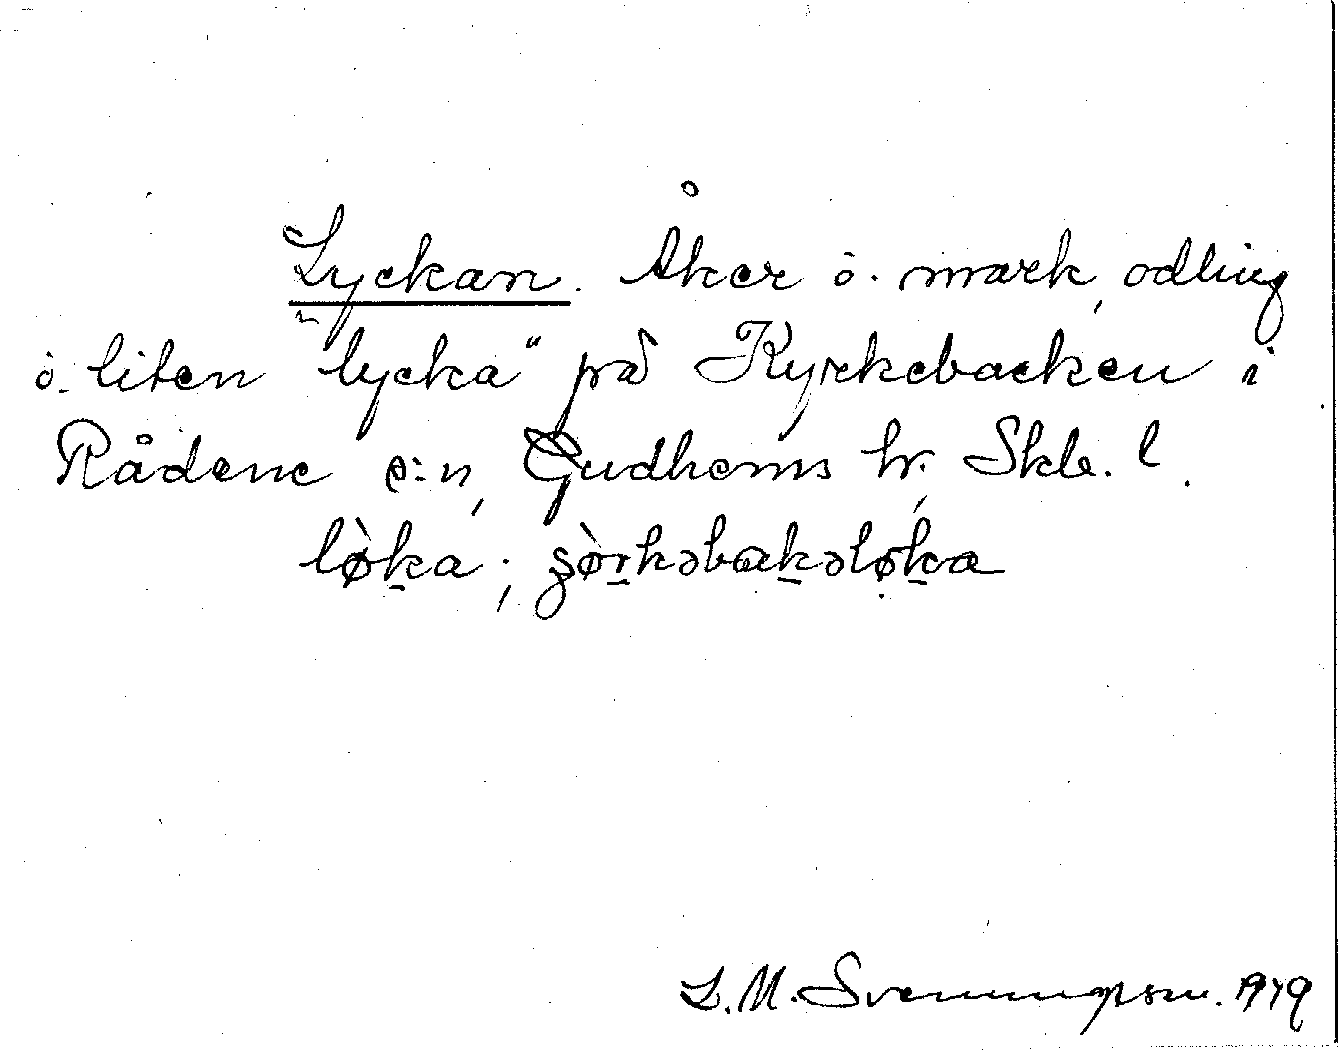 Lyckan. Åker o. mark, odling
o. liten "lycka" på Kyrkebacken i
Rådene s:n, Gudhems hr, Skb. l.
lø̀ka; ʂø̀rkəbakəløka
S. M. Svenungsson. 1949